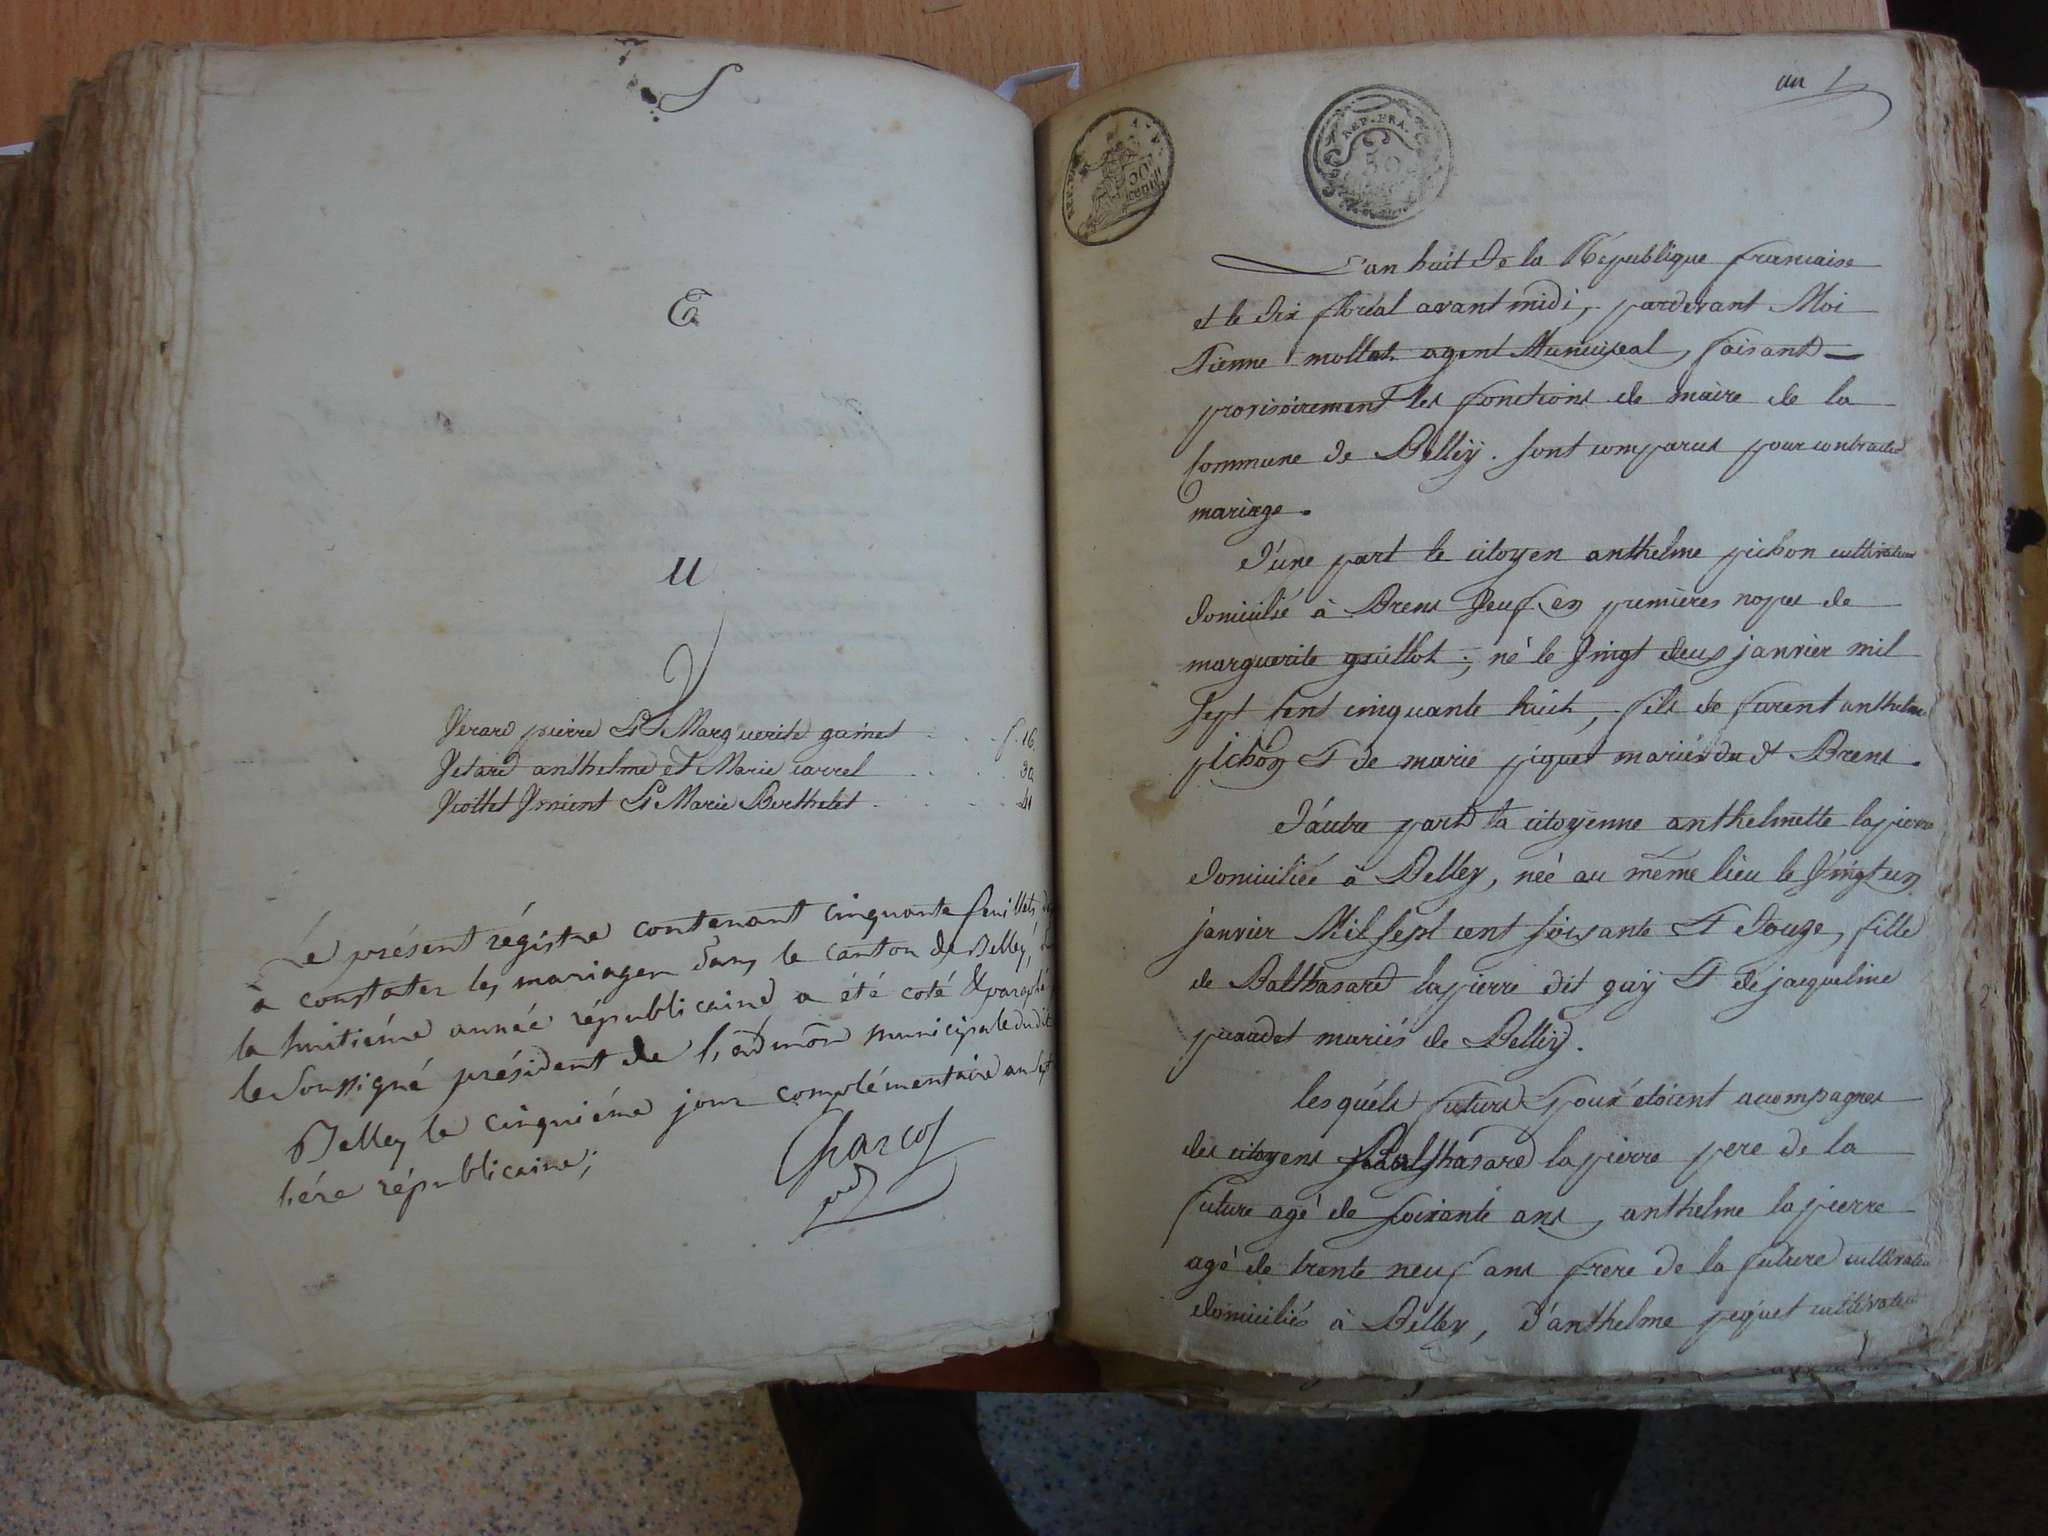 S
T
U
V
Verard pierre Et Marguerite gainet . . . f. 16.
Vetard anthelme et Marie carrel . . . . 30
Violliet Vincient Et Marie Berthelet . . . . 41
Le présent régistre contenant cinquante feuillets
à constater les mariages dans le canton de Belley,
la huitiéme année républicaine, a été coté & paraphé
le Soussigné président de l'admôn municipale dudit
Belley le cinquiéme jour complémentaire an sept
l'ére républicaine;
Charcot
REP. FRA.
50
L'an huit de la République francaise
et le dix floréal avant midi, pardevant Moi
Etienne mollet agent Municipal, faisant
provisoirement les fonctions de maire de la
Commune de Belley. sont comparus pour contracter
mariage.
D'une part le citoyen anthelme pichon cultivateur
domicilié à Brens Veuf en premières nopces de
marguerite guillot ; né le Vingt deux janvier mil
sept cent cinquante huit, fils de furent anthelme
pichon Et de marie piquet mariés du dt Brens.
D'autre part la citoyenne anthelmette lapierre
domiciliée à Belley, née au même lieu le Vingt un
janvier Mil sept cent soixante Et douze, fille
de Balthasard lapierre dit gay Et de jacqueline
mariés de Belley.
lesquels futurs Epoux étoient acompagnes
des citoyens Balthasard lapierre pere de la
future agé de soixante ans, anthelme lapierre
agé de trente neuf ans frere de la future cultivateurs
domiciliés à Belley, d'anthelme piquet cultivateur